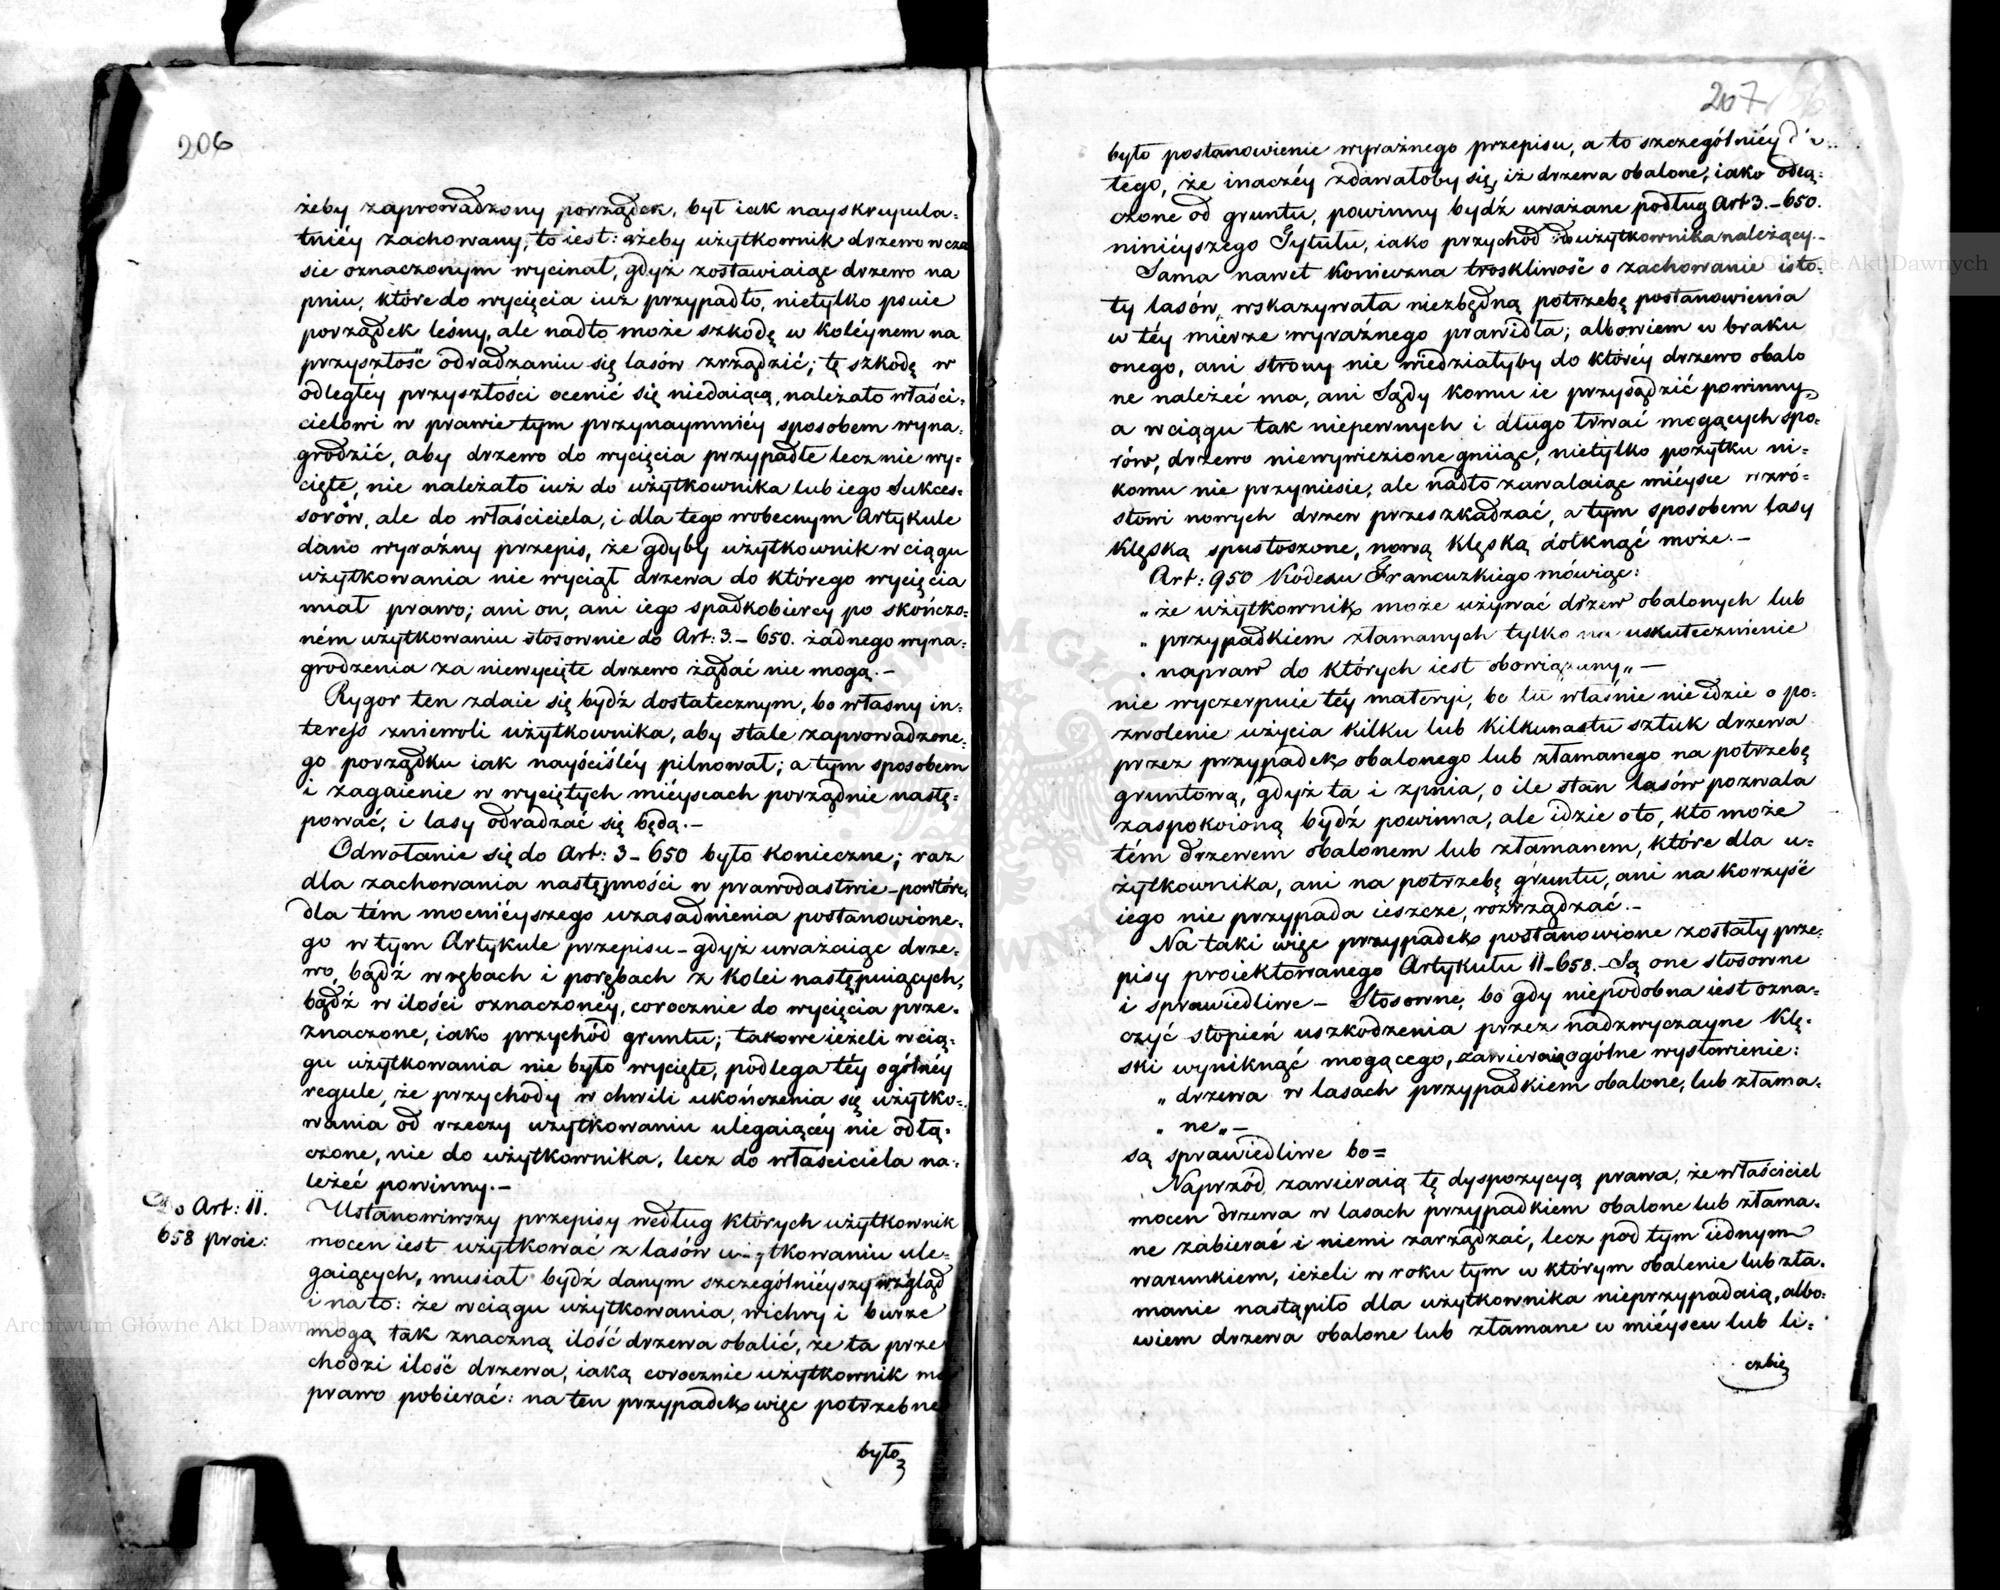 206
żeby zaprowadzony porządek, był iak nayskrupula-
tniéy zachowany, to iest: ażeby użytkownik drzewo w cza
sie oznaczonym wycinał, gdyż zostawiaiąc drzewo na
pniu, które do wycięcia iuż przypadło, nietylko psuie
porządek leśny, ale nadto może szkodę w koléynem na
przyszłość odradzaniu się lasów zrządzić; tę szkodę w
odległéy przyszłości ocenić się niedaiącą, należało właści-
cielowi w prawie tym przynaymniéy sposobem wyna-
grodzić, aby drzewo do wycięcia przypadłe lecz nie wy-
cięte, nie należało iuż do użytkownika lub iego Sukces-
sorów, ale do właściciela, i dla tego w obecnym Artykule
dano wyraźny przepis, że gdyby użytkownik w ciągu
użytkowania nie wyciął drzewa do którego wycięcia
miał prawo; ani on, ani iego spadkobiercy po skończo-
ném użytkowaniu stosownie do Art: 3.-650. żadnego wyna-
grodzenia za niewycięte drzewo żądać nie mogą.-
Rygor ten zdaie się bydź dostatecznym, bo własny in-
teress zniewoli użytkownika, aby stale zaprowadzone-
go porządku iak nayściśléy pilnował; a tym sposobem
i zagaienie w wyciętych mieyscach porządnie nastę-
pować, i lasy odradzać się będą.-
Odwołanie się do Art: 3-650 było konieczne; raz
dla zachowania następności w prawodastwie - powtóre,
dla tém mocniéyszego uzasadnienia postanowione-
go w tym Artykule przepisu - gdyż uważaiąc drze-
wo, bądź w rębach i porębach z kolei następuiących,
bądź w ilości oznaczonéy, corocznie do wycięcia prze-
znaczone, iako przychód gruntu; takowe ieżeli w cią-
gu użytkowania nie było wycięte, podlega téy ogólnéy
regule, że przychody w chwili ukończenia się użytko-
wania od rzeczy użytkowaniu ulegaiącéy nie odłą-
czone, nie do użytkownika, lecz do właściciela na-
leżeć powinny.-
Do Art: 11.
658 proie:
Ustanowiwszy przepisy według których użytkownik
mocen iest użytkować z lasów użytkowaniu ule-
gaiących, musiał bydź danym szczególniéyszy wzgląd
i na to: że w ciągu użytkowania, wichry i burze
mogą tak znaczną ilość drzewa obalić, że ta prze
chodzi ilość drzewa, iaką corocznie użytkownik ma
prawo pobierać: na ten przypadek więc potrzebne
było
207
było postanowienie wyraźnego przepisu, a to szczególniéy
tego, że inaczéy zdawałoby się, iż drzewa obalone, iako odłą-
czone od gruntu, powinny bydź uważane podług Art 3.-650.
niniéyszego Tytułu, iako przychód do użytkownika należący.-
Sama nawet konieczna troskliwość o zachowanie isto-
ty lasów, wskazywała niezbędną potrzebę postanowienia
w téy mierze wyraźnego prawidła; albowiem w braku
onego, ani strony nie wiedziałyby do któréy drzewo obalo
ne należeć ma, ani Sądy komu ie przysądzić powinny,
a w ciągu tak niepewnych i długo trwać mogących spo-
rów, drzewo niewywiezione gniiąc, nietylko pożytku ni-
komu nie przyniesie, ale nadto zawalaiąc miéysce wzró-
stowi nowych drzew przeszkadzać, a tym sposobem lasy
klęską spustoszone, nową klęską dotknąć może.-
Art: 950 Kodexu Francuzkiego mówiąc:
„że użytkownik może używać drzew obalonych lub
„przypadkiem złamanych tylko na uskutecznienie
„napraw do których iest obowiązany„ -
nie wyczerpuie téy materyi, bo tu właśnie nie idzie o po-
zwolenie użycia kilku lub kilkunastu sztuk drzewa
przez przypadek obalonego lub złamanego na potrzebę
gruntową, gdyż ta i z pnia, o ile stan lasów pozwala
zaspokoioną bydź powinna, ale idzie o to, kto może
tém drzewem obalonem lub złamanem, które dla u-
żytkownika, ani na potrzebę gruntu, ani na korzyść
iego nie przypada ieszcze, rozrządzać.-
Na taki więc przypadek postanowione zostały prze-
pisy proiektowanego Artykułu 11-658.- Są one stosowne
i sprawiedliwe - Stosowne, bo gdy niepodobna iest ozna-
czyć stopień uszkodzenia przez nadzwyczayne klę-
ski wyniknąć mogącego, zawieraią ogólne wysłowienie:
„drzewa w lasach przypadkiem obalone, lub złama-
„ne„ -
są sprawiedliwe bo=
Naprzód, zawieraią tę dyspozycyą prawa, że właściciel
mocen drzewa w lasach przypadkiem obalone lub złama-
ne zabierać i niemi zarządzać, lecz pod tym iednym
warunkiem, ieżeli w roku tym w którym obalenie lub zła-
manie nastąpiło dla użytkownika nieprzypadaią, albo-
wiem drzewa obalone lub złamane w miéyscu lub li-
czbie
Archiwum Główne Akt Dawnych
Archiwum Główne Akt Dawnych